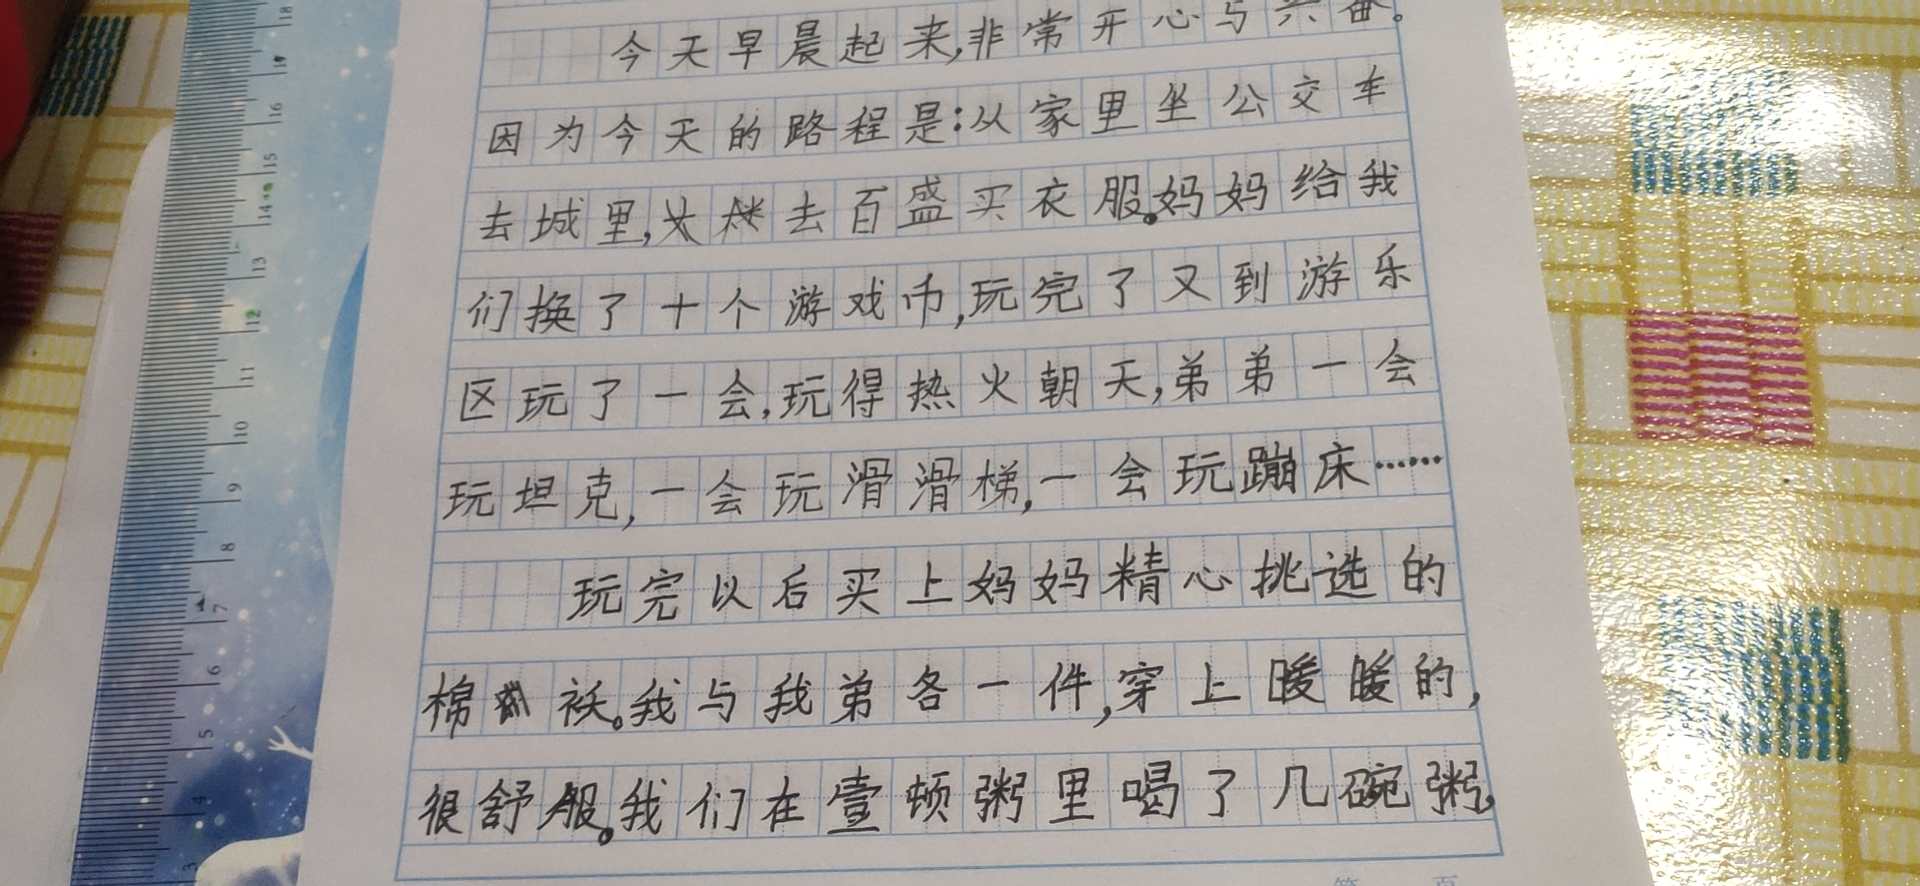 今天早晨起来,非常开心与兴奋。
因为今天的路程是:从家里坐公交车
去城里,去百盛买衣服。妈妈给我
们换了十个游戏币,玩完了又到游乐
区玩了一会,玩得热火朝天,弟弟一会
玩坦克,一会玩滑滑梯,一会玩蹦床……
玩完以后买上妈妈精心挑选的
棉袄。我与我弟各一件,穿上暖暖的,
很舒服。我们在壹顿粥里喝了几碗粥,